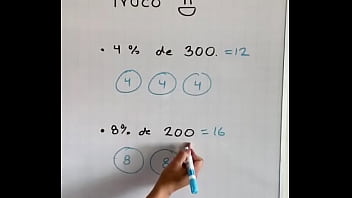 TRUCO
• 4% de 300. =12
4 4 4
• 8% de 200 =16
8 8